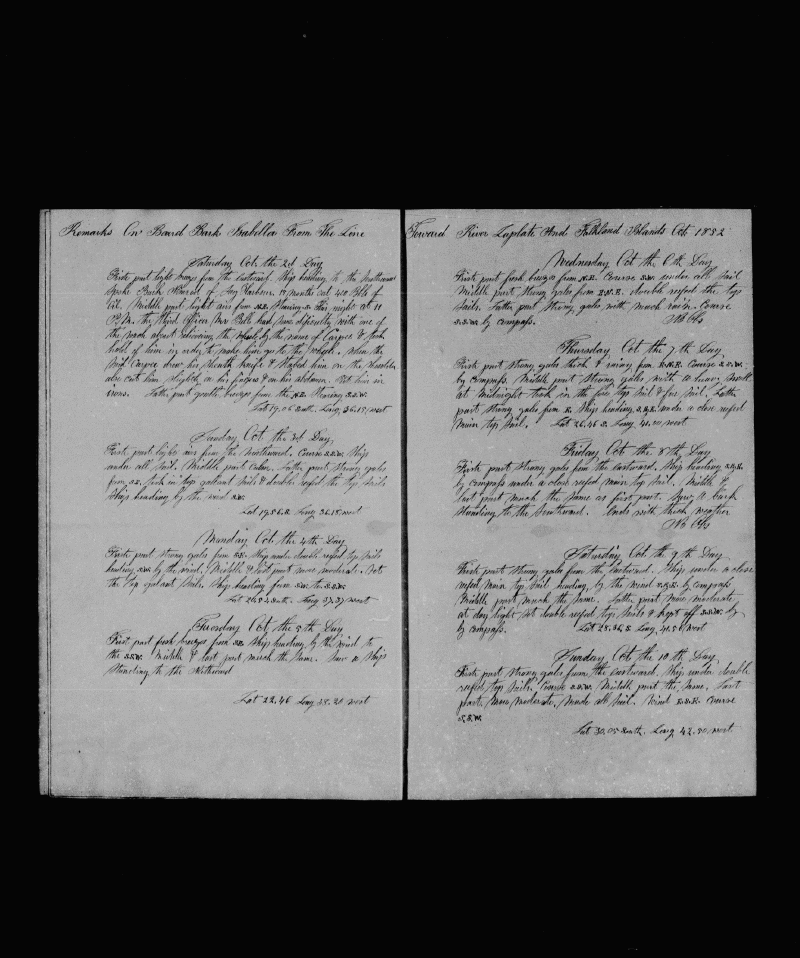 Remarks On Board Bark Isabella From The Line
Saturday Oct. the 2d Day
Firts part light breeze from the Eastward. Ship heading to the Southward
Spoke Bark of Sag Harbour. months out 410 Bbls of
Oil. Middle part light airs from S.E. Steering S. this night at 11
P.M. the third officer Mr had some dificulty with one of
the men about relieving the wheel by the name of Carper & took
hold of him in order to make him go to the wheel. when the
Said Carper drew his Sheath knife & Stabed him on the Shoulder
also cut him Slightly on his fingers & on his abdomen. Put him in
irons. Latter part gentle breezes from the N.E. Steering S.S.W.
Lat 19.06 South. Long. 36.15 West
Sunday Oct. the 3d Day
Firts part light airs from the Northward. Course S.S.W. Ship
under all Sail. Middle part Calm. Latter part Strong gales
from S.E. took in top gallant Sails & double reefed the top Sails
Ship heading by the wind S.W.
Lat 19.56.S Long 36.18 West
Monday Oct. the 4th Day
Firts part Strong gales from S.E. Ship under double reefed top Sails
heading S.S.W. by the wind. Middle & last part more moderate. Sets
the top galant Sails. Ship heading from S.W. to S.S.W.
Lat South. Long 37.37 West
Tuesday Oct. the 5th Day
First part fresh breezes from S.E. Ship heading by the wind to
the S.S.W. Middle & last part much the same. Saw a Ship
Standing to the Northward
Lat 22.46 Long 38.20 West
Toward River Laplate And Falkland Islands Oct. 1852
Wednesday Oct. the 6th Day
Firts part fresh breezes from N.E. Course S.W. under all Sail
Middle part Strong gales from E.N.E. double reefed the top
Sails. Latter part Strong gales with much rain. Course
S.S.W. by compass. No Obs
Thursday Oct. the 7.th Day
Firts part Strong gales thick & rainy from E.N.E. Course S.S.W.
by compass. Middle part Strong gales with a heavy Swell
at midnight took in the fore top Sail & fore Sail. Latter
part Strong gales from E. Ship heading S.S.E. under a close reefed
main top Sail. Lat 26.46 S. Long. 41.00 West
Friday Oct. the 8th Day
Firts part Strong gales from the Eastward. Ship heading S.S.E.
by compass under a close reefed main top Sail. Middle &
last part much the same as first part. Saw a bark
Standing to the Southward. Ends with thick weather
No Obs
Saturday Oct. the 9.th Day
Firts part Strong gales from the Eastward. Ship under a close
reefed Main top Sail heading by the wind S.S.E. by compass
Middle part much the same. Latter part More moderate
at day light Set double reefed top Sails & kept off S.S.W. by
by compass. Lat 28.36.S Long. 41.50 West
Sunday Oct. the 10.th Day
Firts part Strong gales from the Eastward. Ship under double
reefed top Sails Course S.S.W. Middle part the Same. Last
part More Moderate. Made all Sail. Wind E.S.E. Course
S.S.W.
Lat 30.05 South. Long 42.50 West